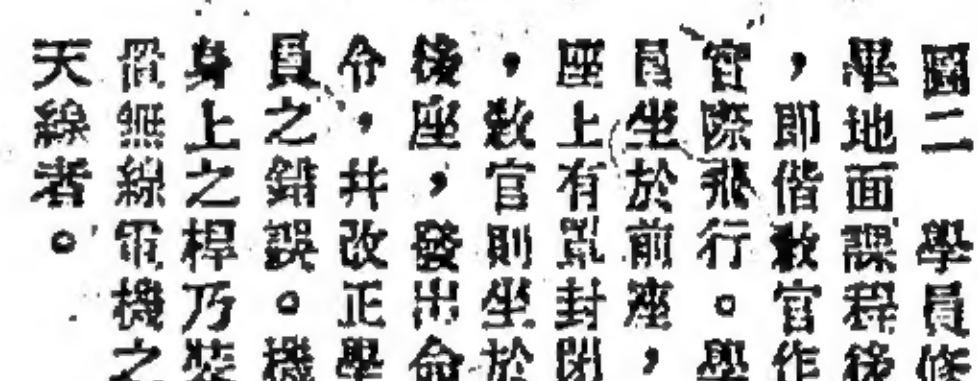 圖二　學員修
畢地面課程後
，即偕教官作
實際飛行。學
員坐於前座，
座上有罩封閉
，教官則坐於
後座，發出命
令，并改正學
員之錯誤。機
身上之桿乃裝
置無線電機之
天線者。